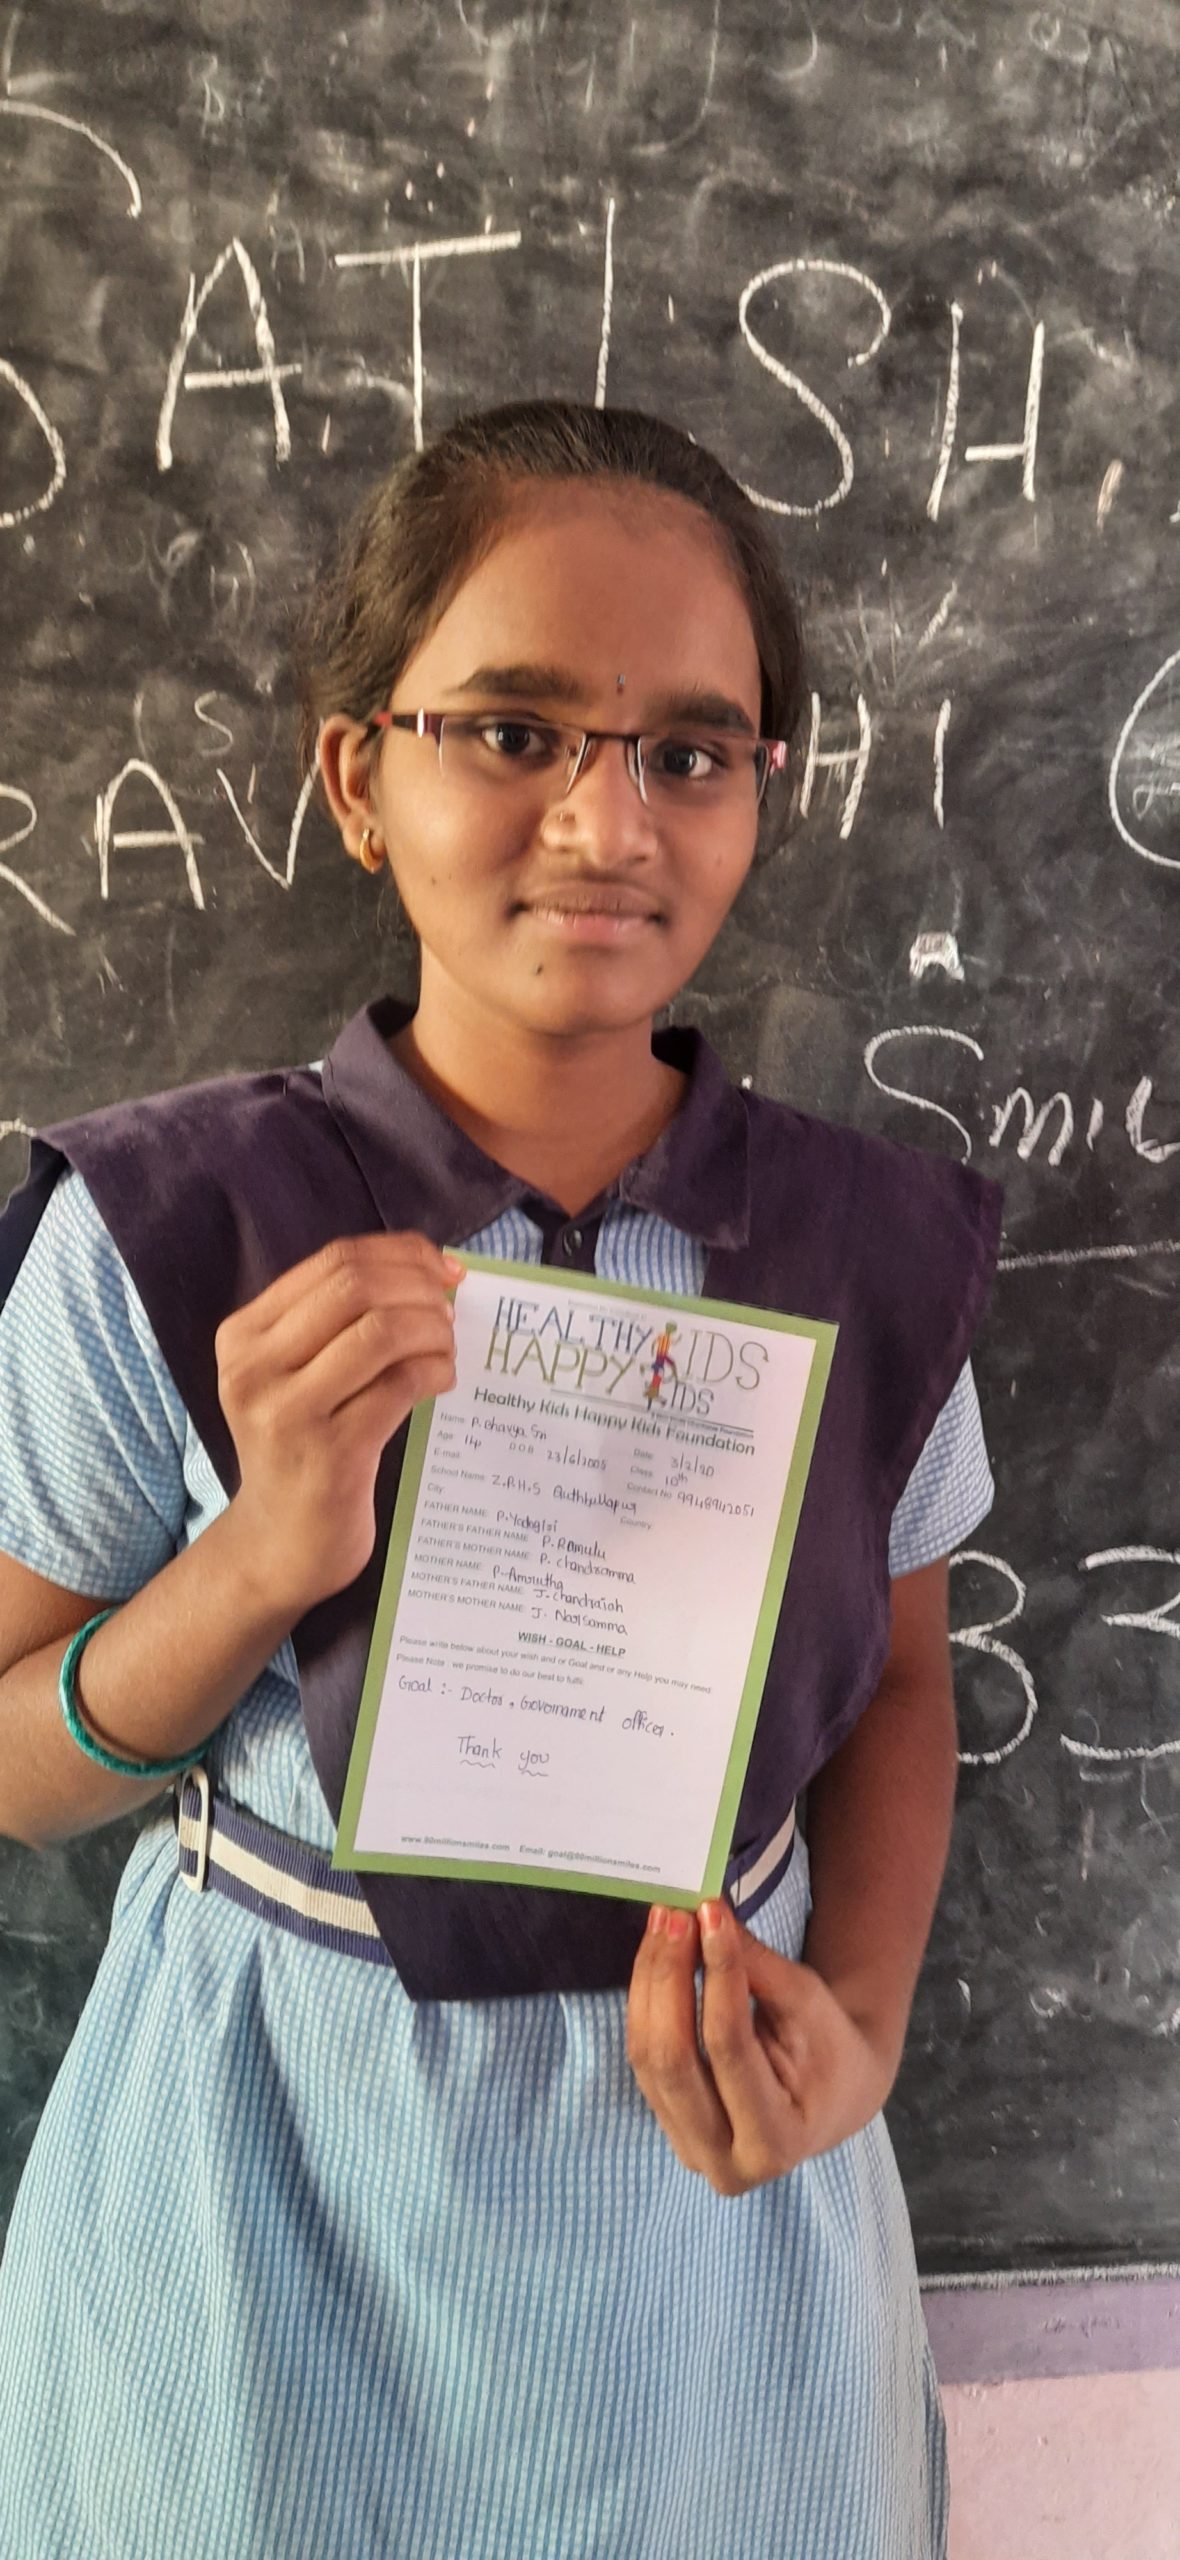 SATISH.
S
RAV HI
Smil
33
HEALTHY KIDS
HAPPY KIDS
Healthy Kids Happy Kids Foundation
Name: P. Bhavya Sri Date: 3/2/20
Age: 14 D O B 23/6/2005 Class: 10th
E-mail: Contact No 9948942051
School Name: Z.P.H.S Quthbullapur
City: Country:
FATHER NAME: P. Yadagiri
FATHER'S FATHER NAME: P. Ramulu
FATHER'S MOTHER NAME: P. Chandramma
MOTHER NAME: P. Amrutha
MOTHER'S FATHER NAME: J. Chandraiah
MOTHER'S MOTHER NAME: J. Narsamma
WISH - GOAL - HELP
Please write below about your wish and or Goal and or any Help you may need:
Please Note : we promise to do our best to fulfil:
Goal :- Doctor, Governament officer.
Thank you
www.90millionsmiles.com Email: goal@90millionsmiles.com